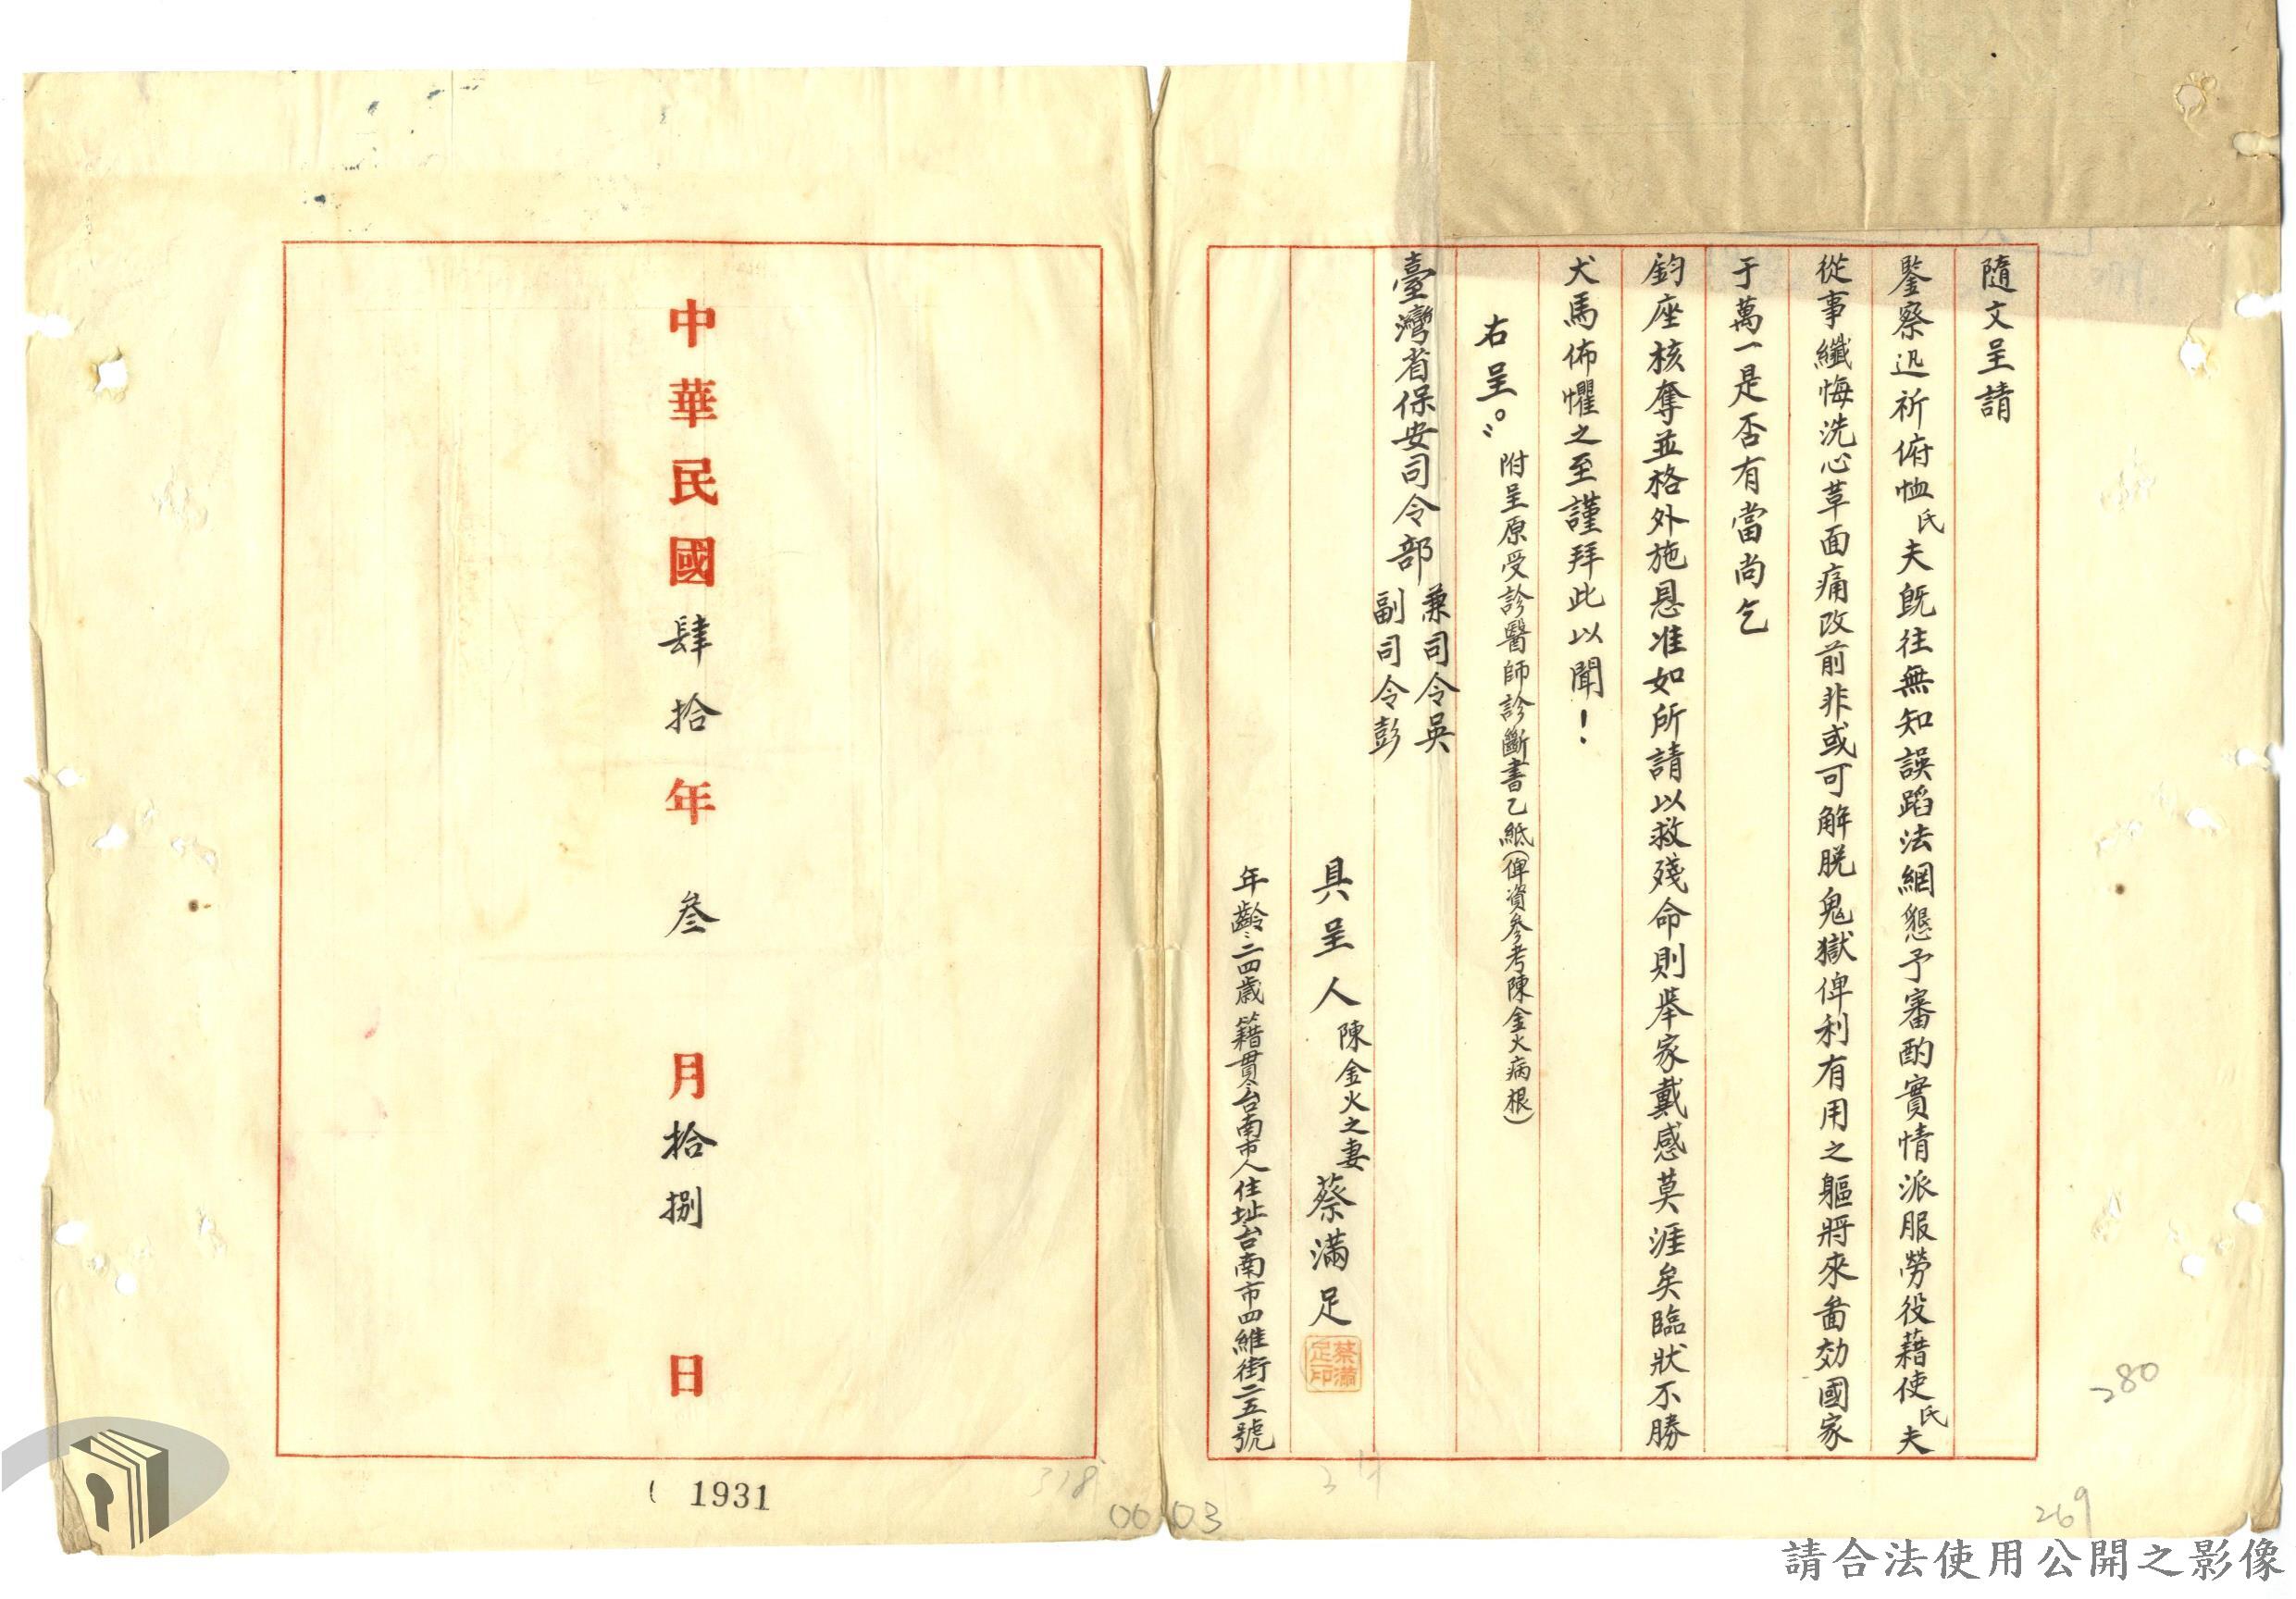 隨文呈請
鑒察迅祈俯恤氏夫既往無知誤蹈法網懇予審酌實情派服勞役藉使氏夫
從事纖悔洗心革面痛改前非或可解脫鬼獄俾利有用之軀將來啚効國家
于萬一是否有當尚乞
鈞座核奪並格外施恩准如所請以救殘命則舉家戴感莫涯矣臨狀不勝
犬馬佈懼之至謹拜此以聞！
右呈。
附呈原受診醫師診斷書乙紙(俾資參考陳金火病根)
臺灣省保安司令部
兼司令吳
副司令彭
具呈人陳金火之妻蔡滿足
蔡滿足印
年齡:二四歲籍貫台南市人住址台南市四維街二五號
中華民國肆拾年叁月拾捌日
( 1931
318
00 03
269
280
請合法使用公開之影像